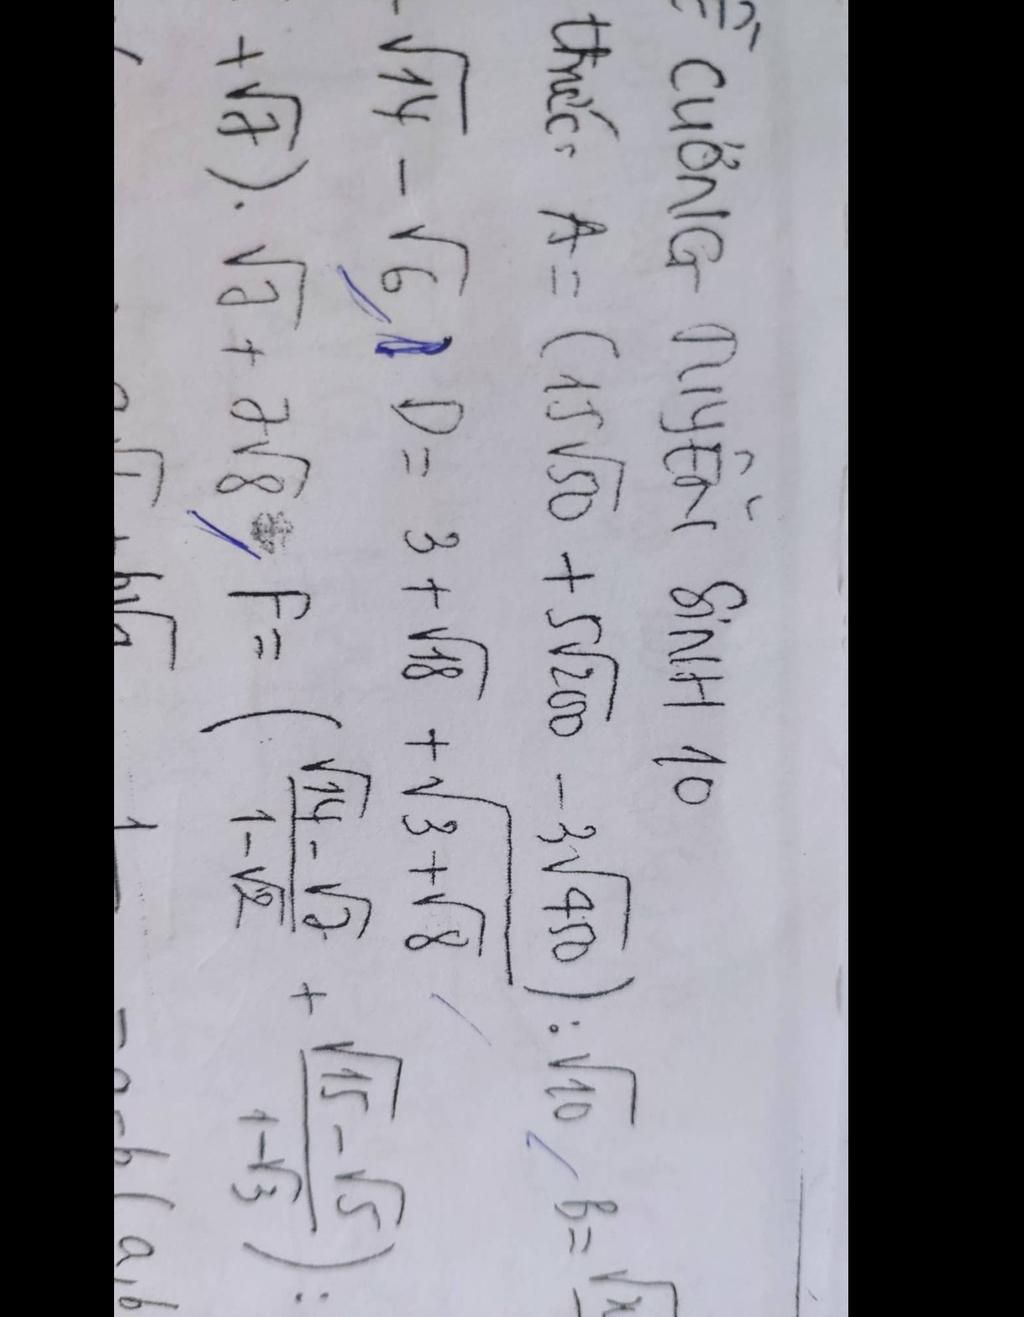 CƯƠNG TUYỂN SINH 10
thức A = (15√50 + 5√200 - 3√450) : √10 B =
- √14 - √6, D = 3 + √18 + √(3 + √8)
+ √7). √7 + 2√8, F = ((√14 - √7)/(1 - √2) + (√15 - √5)/(1 - √3)) :